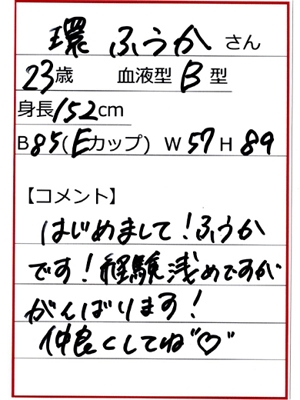 環 ふうか さん
23歳 血液型 B 型
身長152cm
B85(Eカップ) W57H89
【コメント】
はじめまして!ふうか
です!経験浅めですが
がんばります!
仲良くしてね"♡"